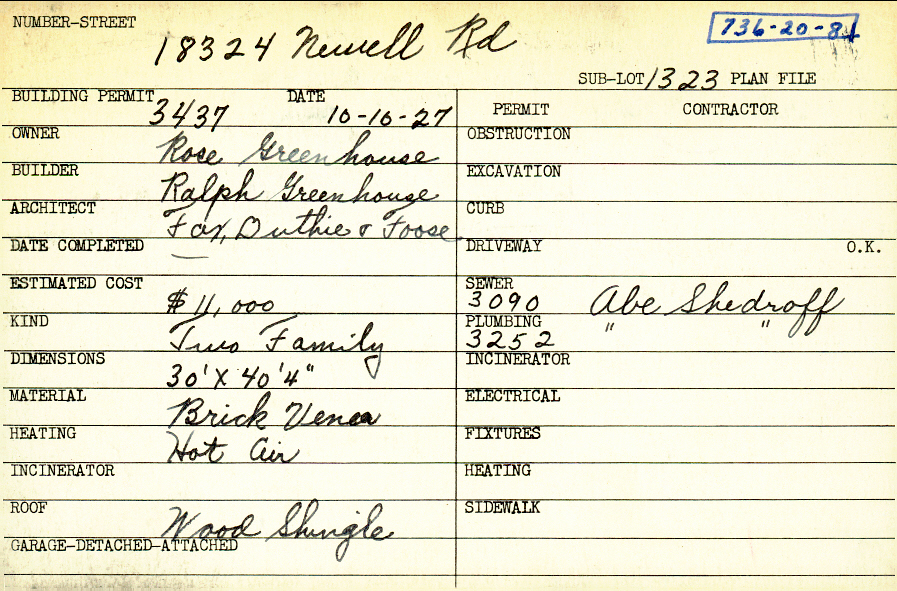 NUMBER-STREET
18324 Newell Rd
736-20-81
SUB-LOT 1323 PLAN FILE
BUILDING PERMIT 3437 DATE 10-10-27
OWNER Rose Greenhouse
BUILDER Ralph Greenhouse
ARCHITECT Fox, Duthie & Foose
DATE COMPLETED —
ESTIMATED COST $11,000
KIND Two Family
DIMENSIONS 30' X 40'4"
MATERIAL Brick Venea
HEATING Hot Air
INCINERATOR
ROOF Wood Shingle
GARAGE-DETACHED-ATTACHED
PERMIT CONTRACTOR
OBSTRUCTION
EXCAVATION
CURB
DRIVEWAY O.K.
SEWER 3090 Abe Shedroff
PLUMBING 3252 " "
INCINERATOR
ELECTRICAL
FIXTURES
HEATING
SIDEWALK